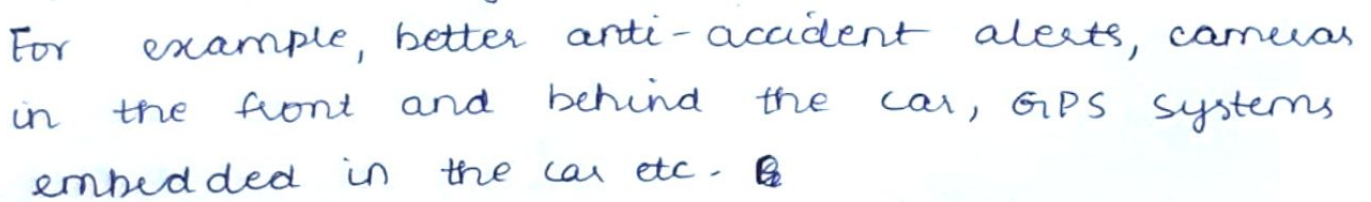 For example, better anti-accident alerts, cameras
in the front and behind the car, GPS systems
embedded in the car etc.